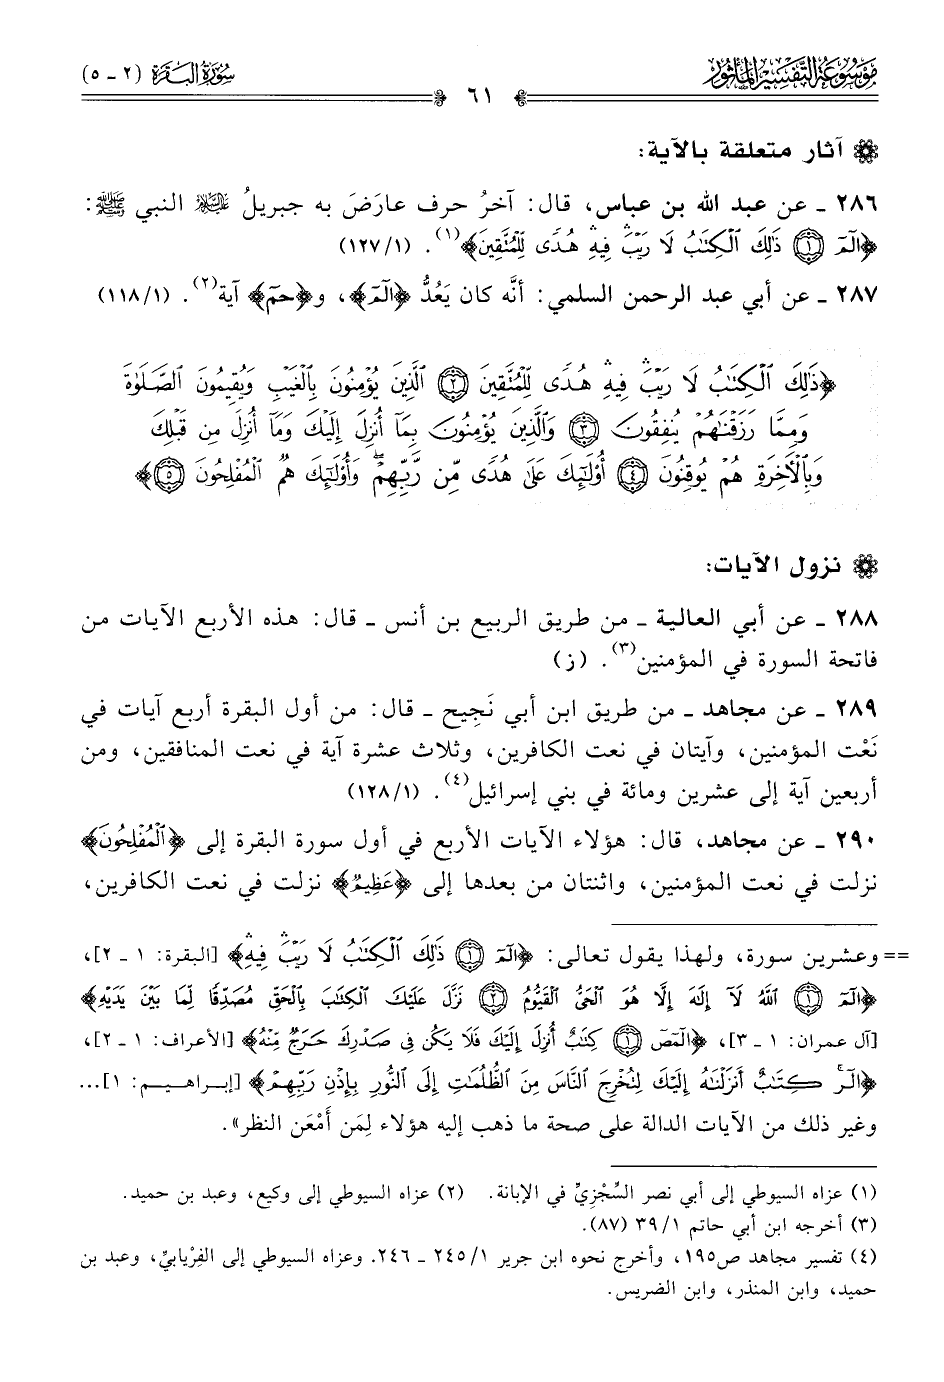 موسوعة التفسير المأثور
سورة البقرة (٢ ـ ٥)
٦١
آثار متعلقة بالآية:
٢٨٦ ـ عن عبد الله بن عباس، قال: آخرُ حرف عارَضَ به جبريلُ عليه السلام النبي ﷺ:
﴿الٓمٓ ۝١ ذَٰلِكَ ٱلْكِتَٰبُ لَا رَيْبَۛ فِيهِۛ هُدًى لِّلْمُتَّقِينَ﴾(١). (١/ ١٢٧)
٢٨٧ ـ عن أبي عبد الرحمن السلمي: أنَّه كان يَعُدُّ ﴿الٓمٓ﴾، و﴿حمٓ﴾ آية(٢). (١/ ١١٨)
﴿ذَٰلِكَ ٱلْكِتَٰبُ لَا رَيْبَۛ فِيهِۛ هُدًى لِّلْمُتَّقِينَ ۝٢ ٱلَّذِينَ يُؤْمِنُونَ بِٱلْغَيْبِ وَيُقِيمُونَ ٱلصَّلَوٰةَ
وَمِمَّا رَزَقْنَٰهُمْ يُنفِقُونَ ۝٣ وَٱلَّذِينَ يُؤْمِنُونَ بِمَآ أُنزِلَ إِلَيْكَ وَمَآ أُنزِلَ مِن قَبْلِكَ
وَبِٱلْءَاخِرَةِ هُمْ يُوقِنُونَ ۝٤ أُو۟لَٰٓئِكَ عَلَىٰ هُدًى مِّن رَّبِّهِمْۖ وَأُو۟لَٰٓئِكَ هُمُ ٱلْمُفْلِحُونَ ۝٥﴾
نزول الآيات:
٢٨٨ ـ عن أبي العالية ـ من طريق الربيع بن أنس ـ قال: هذه الأربع الآيات من
فاتحة السورة في المؤمنين(٣). (ز)
٢٨٩ ـ عن مجاهد ـ من طريق ابن أبي نَجِيح ـ قال: من أول البقرة أربع آيات في
نَعْت المؤمنين، وآيتان في نعت الكافرين، وثلاث عشرة آية في نعت المنافقين، ومن
أربعين آية إلى عشرين ومائة في بني إسرائيل(٤). (١/ ١٢٨)
٢٩٠ ـ عن مجاهد، قال: هؤلاء الآيات الأربع في أول سورة البقرة إلى ﴿ٱلْمُفْلِحُونَ﴾
نزلت في نعت المؤمنين، واثنتان من بعدها إلى ﴿عَظِيمٌ﴾ نزلت في نعت الكافرين،
== وعشرين سورة، ولهذا يقول تعالى: ﴿الٓمٓ ۝١ ذَٰلِكَ ٱلْكِتَٰبُ لَا رَيْبَۛ فِيهِۛ﴾ [البقرة: ١ ـ ٢]،
﴿الٓمٓ ۝١ ٱللَّهُ لَآ إِلَٰهَ إِلَّا هُوَ ٱلْحَىُّ ٱلْقَيُّومُ ۝٢ نَزَّلَ عَلَيْكَ ٱلْكِتَٰبَ بِٱلْحَقِّ مُصَدِّقًا لِّمَا بَيْنَ يَدَيْهِ﴾
[آل عمران: ١ ـ ٣]، ﴿الٓمٓصٓ ۝١ كِتَٰبٌ أُنزِلَ إِلَيْكَ فَلَا يَكُن فِى صَدْرِكَ حَرَجٌ مِّنْهُ﴾ [الأعراف: ١ ـ ٢]،
﴿الٓر كِتَٰبٌ أَنزَلْنَٰهُ إِلَيْكَ لِتُخْرِجَ ٱلنَّاسَ مِنَ ٱلظُّلُمَٰتِ إِلَى ٱلنُّورِ بِإِذْنِ رَبِّهِمْ﴾ [إبراهيم: ١]...
وغير ذلك من الآيات الدالة على صحة ما ذهب إليه هؤلاء لِمَن أَمْعَن النظر».
(١) عزاه السيوطي إلى أبي نصر السِّجْزِيِّ في الإبانة. (٢) عزاه السيوطي إلى وكيع، وعبد بن حميد.
(٣) أخرجه ابن أبي حاتم ١/ ٣٩ (٨٧).
(٤) تفسير مجاهد ص١٩٥، وأخرج نحوه ابن جرير ١/ ٢٤٥ ـ ٢٤٦. وعزاه السيوطي إلى الفِرْيابيِّ، وعبد بن
حميد، وابن المنذر، وابن الضريس.